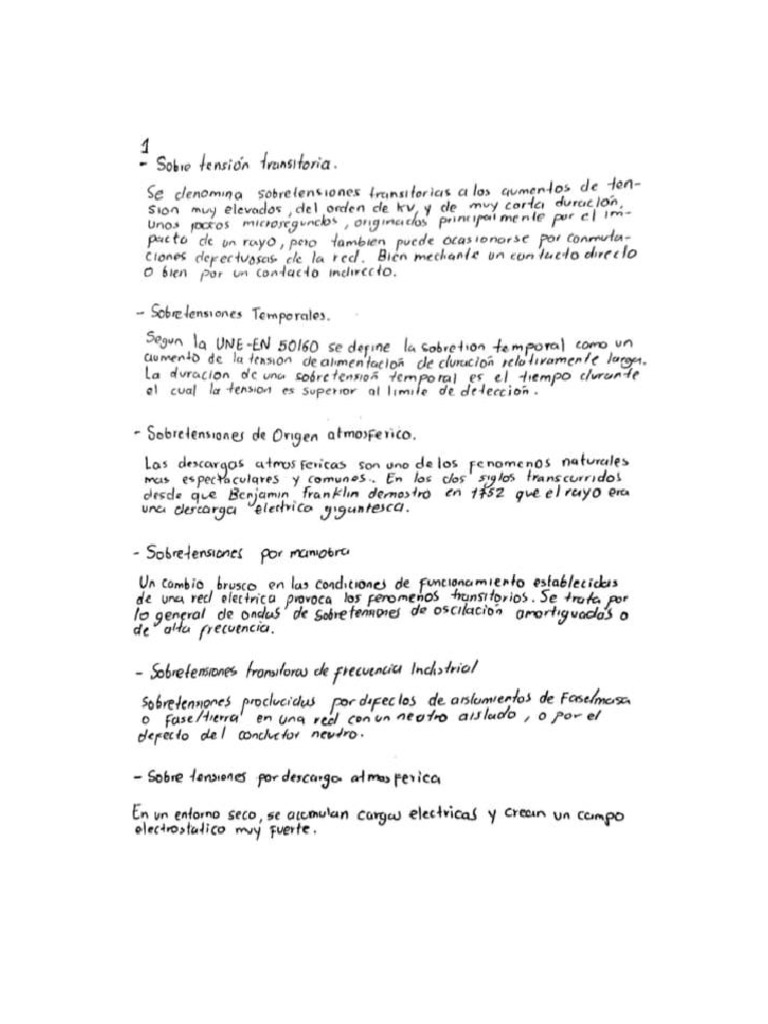 1
- Sobre tensión transitoria.
Se denomina sobretensiones transitorias a los aumentos de ten-
sion muy elevados, del orden de kv, y de muy corta duración,
unos pocos microsegundos, originados principalmente por el im-
pacto de un rayo, pero tambien puede ocasionarse por conmuta-
ciones defectuosas de la red. Bien mediante un contacto directo
o bien por un contacto indirecto.
- Sobretensiones Temporales.
Segun la UNE-EN 50160 se define la sobretion temporal como un
aumento de la tension de alimentación de duración relativamente larga.
La duracion de una sobretensión temporal es el tiempo durante
el cual la tension es superior al limite de detección.
- Sobretensiones de Origen atmosferico.
Las descargas atmosfericas son uno de los fenomenos naturales
mas espectaculares y comunes. En los dos siglos transcurridos
desde que Benjamin franklin demostro en 1752 que el rayo era
una descarga electrica gigantesca.
- Sobretensiones por maniobra
Un cambio brusco en las condiciones de funcionamiento establecidas
de una red electrica provoca los fenomenos transitorios. Se trata por
lo general de ondas de sobretensiones de oscilación amortiguadas o
de alta frecuencia.
- Sobretensiones transitoras de frecuencia Indstrial
Sobretensiones producidas por defectos de aislamientos de Fase/masa
o fase/tierra en una red con un neutro aislado, o por el
defecto del conductor neutro.
- Sobre tensiones por descarga atmosferica
En un entorno seco, se acumulan cargas electricas y crean un campo
electrostatico muy fuerte.